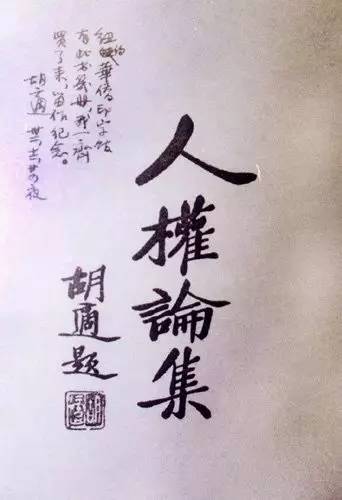 人權論集
胡適題
紐約華僑印
有此書幾冊我一齊
買了來，留作紀念。
胡適 夜